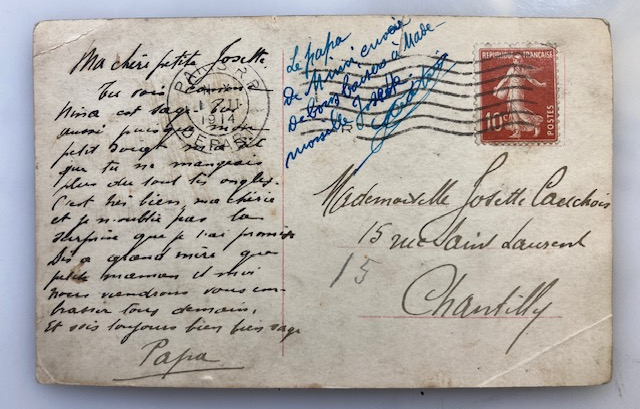 Ma chère petite Josette.
Tu vois comme
Nina est sage. Toi
aussi puisque mon
petit doigt m'a dit
que tu ne mangeais
plus du tout tes ongles.
C'est très bien, ma chérie
et je n'oublie pas la
surprise que je t'ai promise
Dis à grand mère que
petite maman et moi
nous viendrons vous em-
brasser tous demain.
Et sois toujours bien bien sage
Papa
PARIS R.P.
1914
DEPART
Le papa
De Ninin envoie
De bons baisers à Made-
moiselle Josette
REPUBLIQUE FRANÇAISE
10c
POSTES
Mademoiselle Josette
15 rue Saint Laurent
15
Chantilly